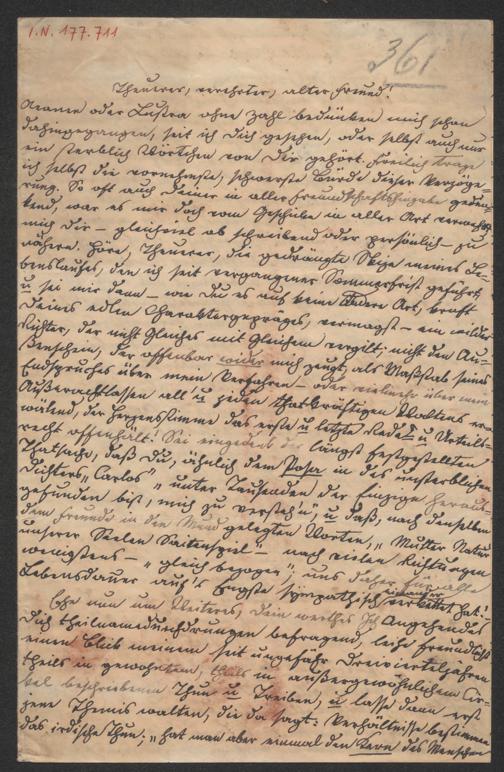 I.N. 177.711
361
Theuerer, verehrter, alter Freund!
Aeonen oder Lustra ohne Zahl bedünken mich schon
dahingegangen, seit ich Dich gesehen, oder selbst auch nur
ein sterblich Wörtchen von Dir gehört. Freilich trage
ich selbst die vornehmste, schwerste Bürde dieser Verzöge-
rung. So oft auch Deiner in aller Freundschaftsfugabe geden-
kend, war es mir doch vom Geschicke in aller Art verwehrt
mich Dir – gleichviel ob schreibend oder persönlich – zu
nähern. Höre, Theuerer, die gedrängte Skizze meines Le-
benslaufes, den ich seit vergangener Sommerfrist geführt,
u sei mir dann – wie Du es auf keine andere Art, kraft
Deines edlen Charaktergepräges, vermagst – ein milder
Richter, der nicht Gleiches mit Gleichem vergilt; nicht den Au-
genschein, der offenbar wider mich zeugt, als Maßstab seines
Endspruches über mein Verfahren – oder vielmehr über mein
Außerachtlassen all' u jeden thatkräftigen Waltens er-
wälend, der Herzensstimme das erste u letzte Rede- u Urtheils-
recht offenhält. Sei eingedenk der längst festgestellten
Thatsache, daß Du, ähnlich dem Posa in des unsterblichen
Dichters „Carlos" unter Tausenden der Einzige heraus-
gefunden bist, mich zu verstehn, u daß, nach denselben
dem Freunde in den Mund gelegten Worten, „Mutter Natur
unserer Seelen Saitenspiel" – nach vielen Richtungen
wenigstens – „gleich bezogen", uns daher für alle
Lebensdauer auf's Engste sympathisch aneinander verkettet hat. –
Ehe nun um Weiteres, Dein werthes Ich Angehendes
Dich theilnamedurchdrungen befragend, leihe freundlichst
einen Blick meinem seit ungefähr dreivierteljahren
theils in gewohntem, theils in außergewöhnlichem Cir-
kel beschriebenem Thun u Treiben, u lasse dann erst
jene Themis walten, die da sagt: Verhältnisse bestimmen
das irdische Thun; „hat man aber einmal den Kern des Menschen